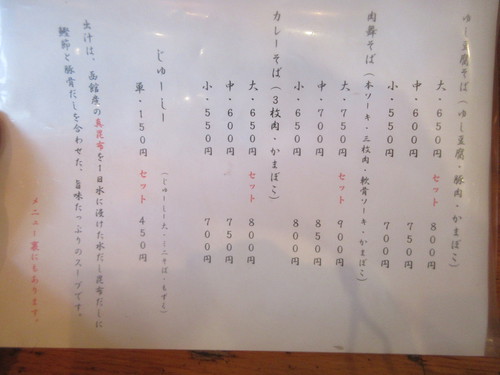 ゆし豆腐そば(ゆし豆腐・豚肉・かまぼこ)
大・650円 セット 800円
中・600円 750円
小・550円 700円
肉舞そば(本ソーキ・三枚肉・軟骨ソーキ・かまぼこ)
大・750円 セット 900円
中・700円 850円
小・650円 800円
カレーそば(3枚肉・かまぼこ)
大・650円 セット 800円
中・600円 750円
小・550円 700円
じゅーしー
(じゅーしー大・ミニそば・もずく)
単・150円 セット 450円
出汁は、函館産の真昆布を1日水に漬けた水だし昆布だしに
鰹節と豚骨だしを合わせた、旨味たっぷりのスープです。
メニュー裏にもあります。